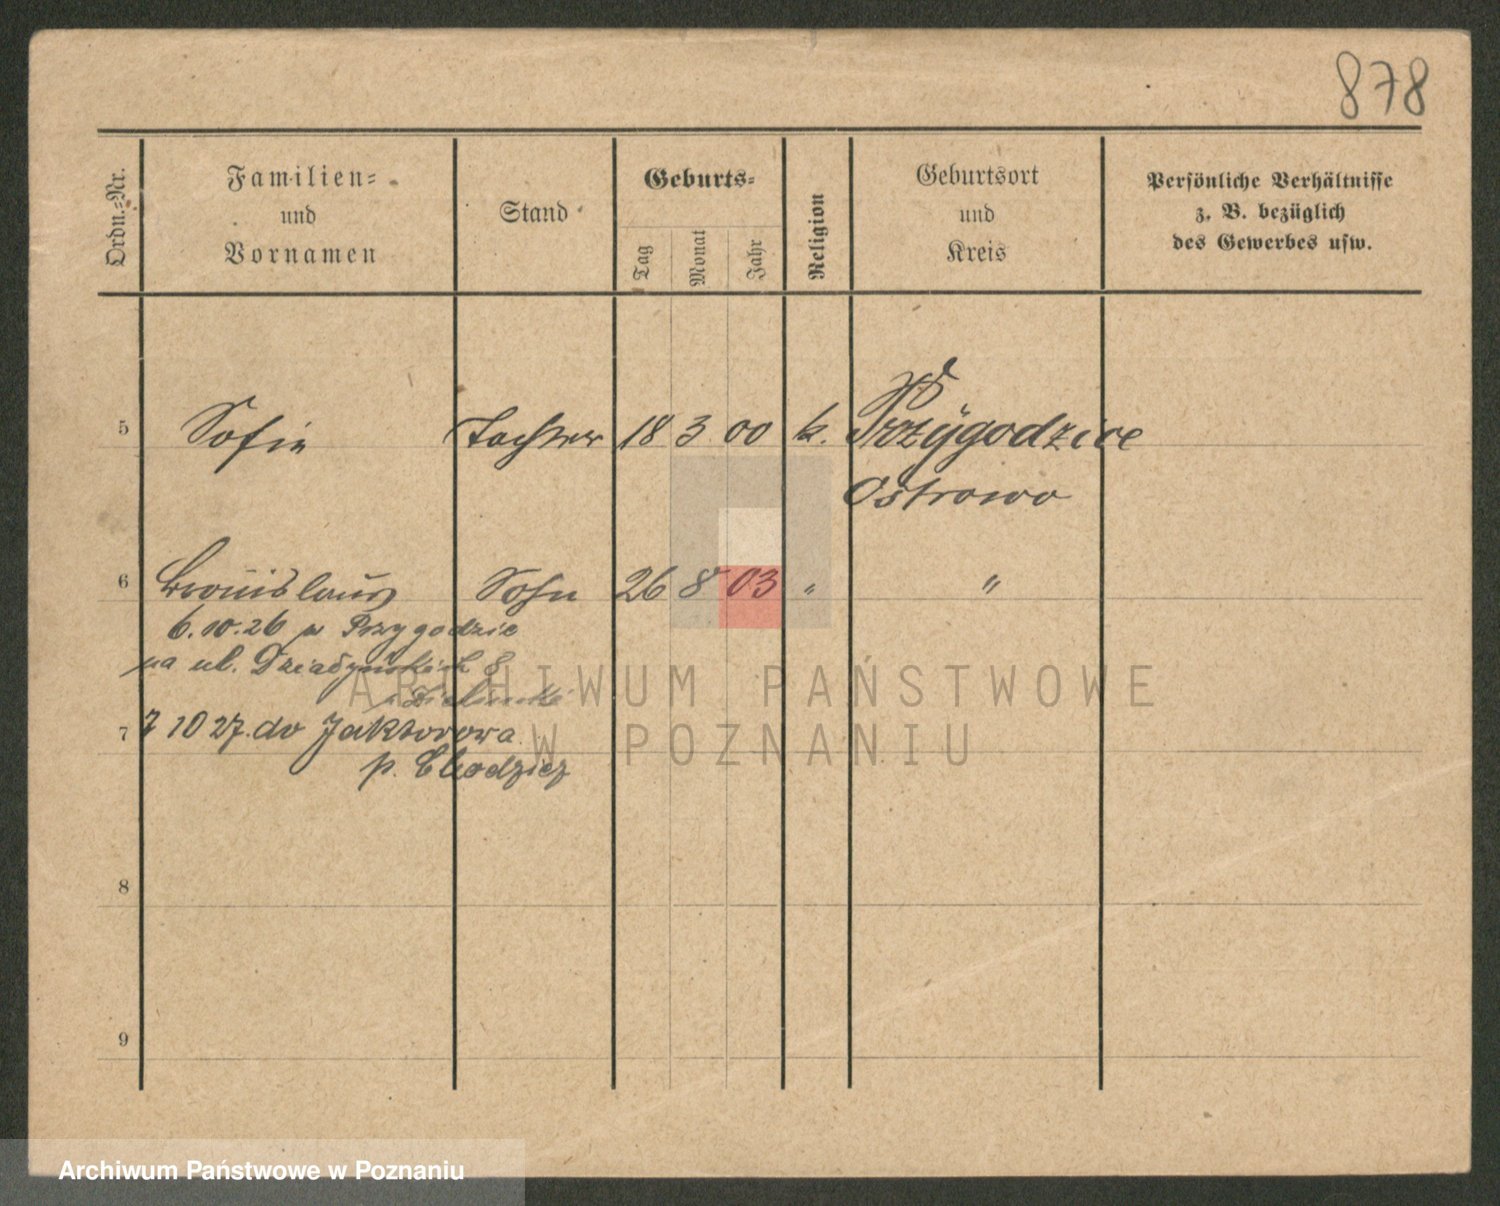 878
Ordn.-Nr.
Familien-
und
Vornamen
Stand
Geburts-
Tag
Monat
Jahr
Religion
Geburtsort
und
Kreis
Persönliche Verhältnisse
z. B. bezüglich
des Gewerbes usw.
5 Sofie Tochter 18 3 00 k. Przygodzice
Ostrowo
6 Bronislaus Sohn 26 8 03 " "
6.10.26 w Przygodzic
na ul. Działyńskich 8
7 7 10 27. do Jaktorowa
p. Chodzież
8
9
ARCHIWUM PAŃSTWOWE
W POZNANIU
Archiwum Państwowe w Poznaniu